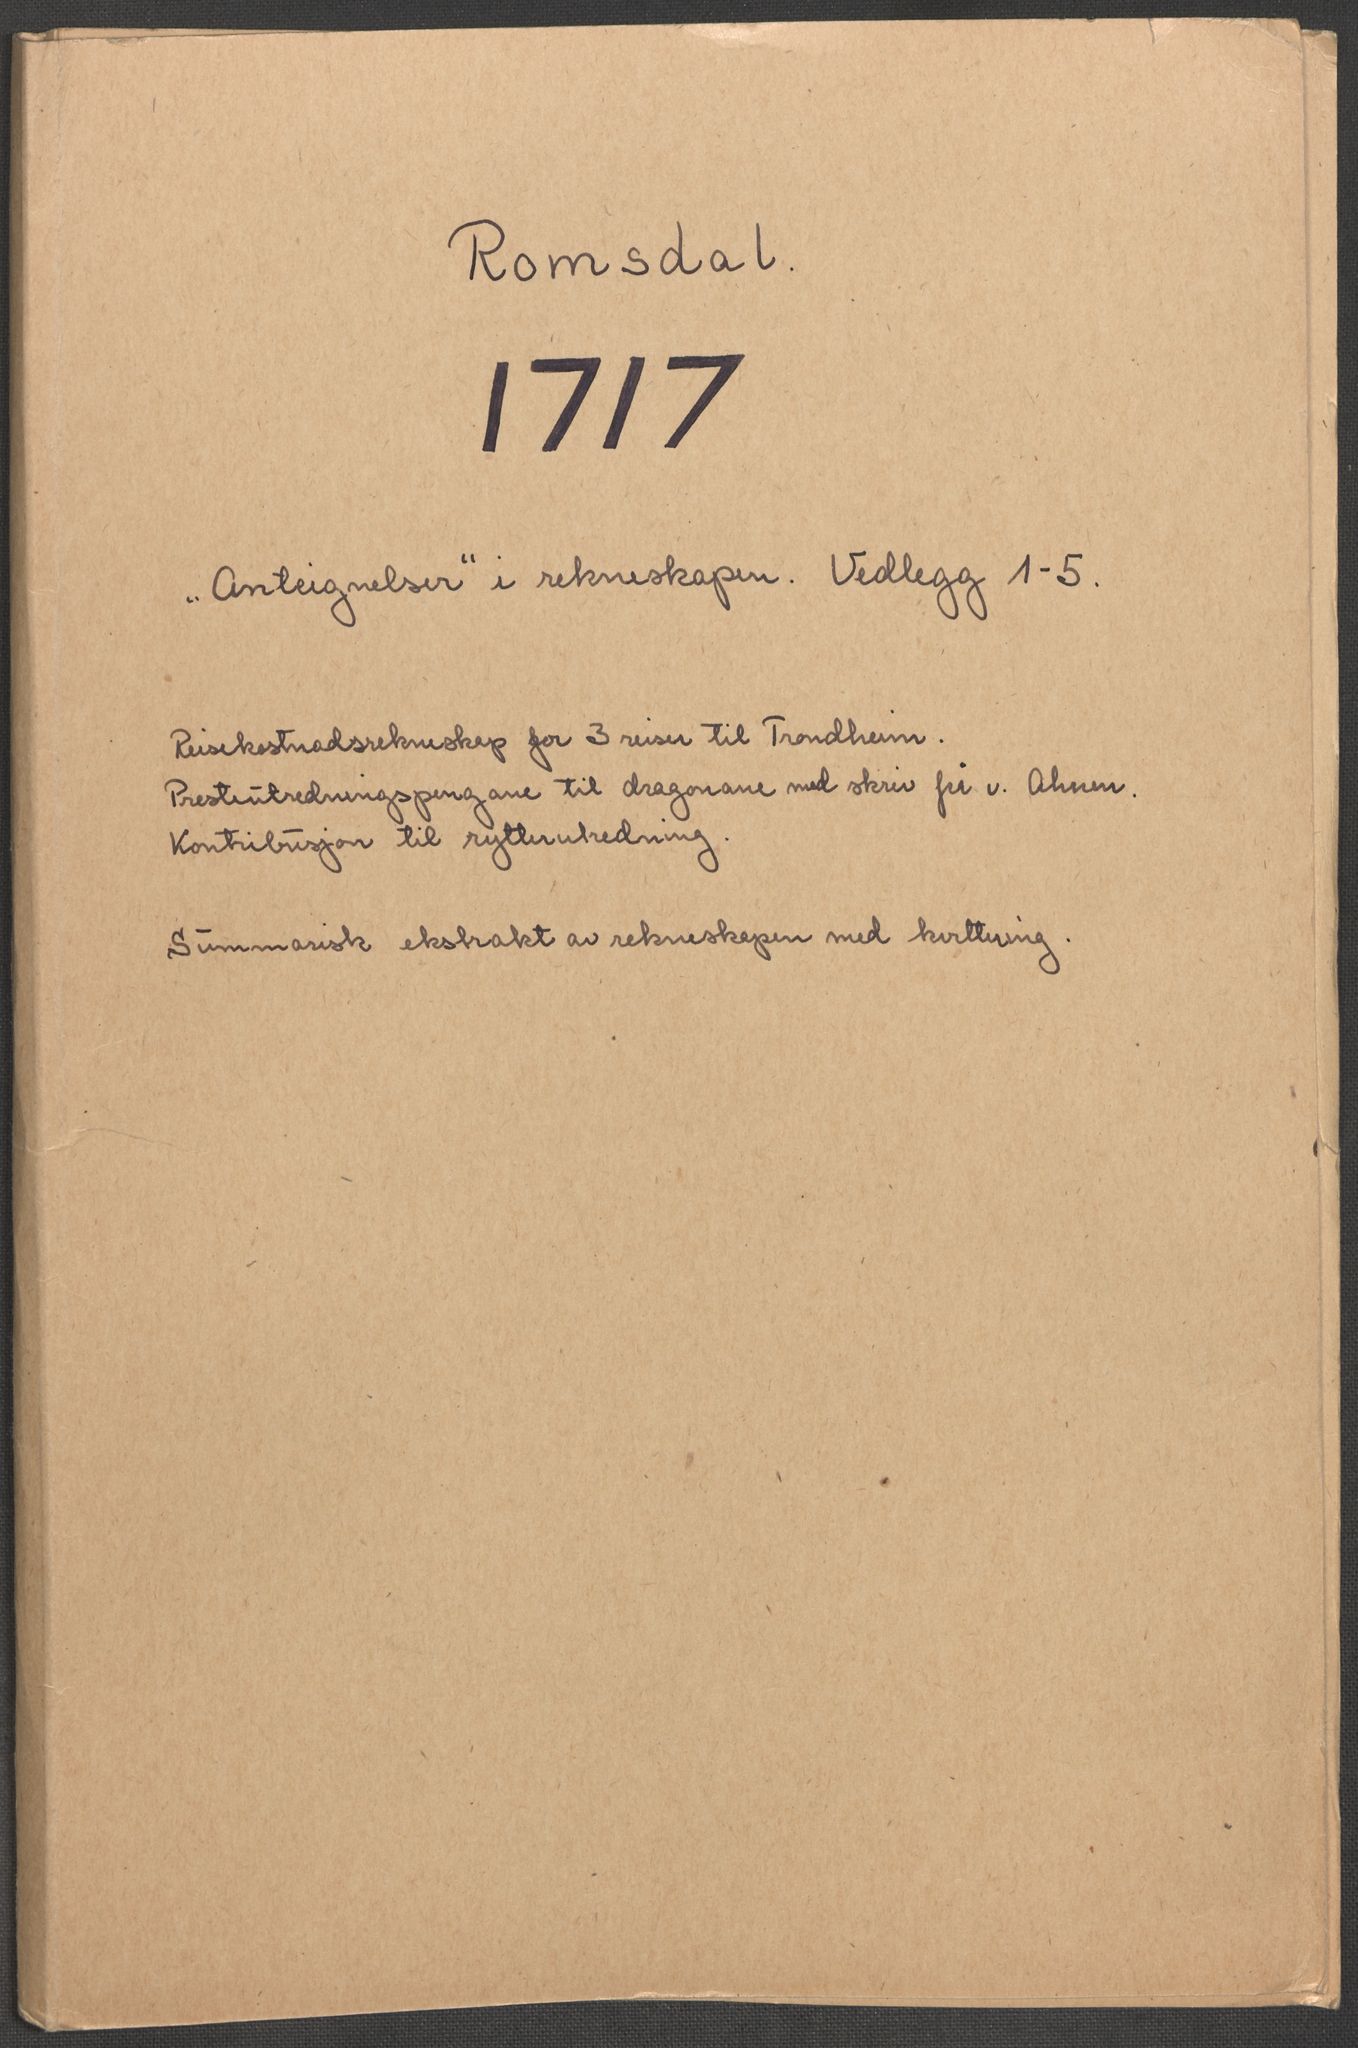 Romsdal.
1717
„Anteignelser“ i rekneskapen. Vedlegg 1-5.
Reisekostnadsrekneskap for 3 reiser til Trondheim.
Presteutredningspengane til dragonane med skriv frå v. Ahnen.
Kontribusjon til rytterutredning.
Summarisk ekstrakt av rekneskapen med kvittering.